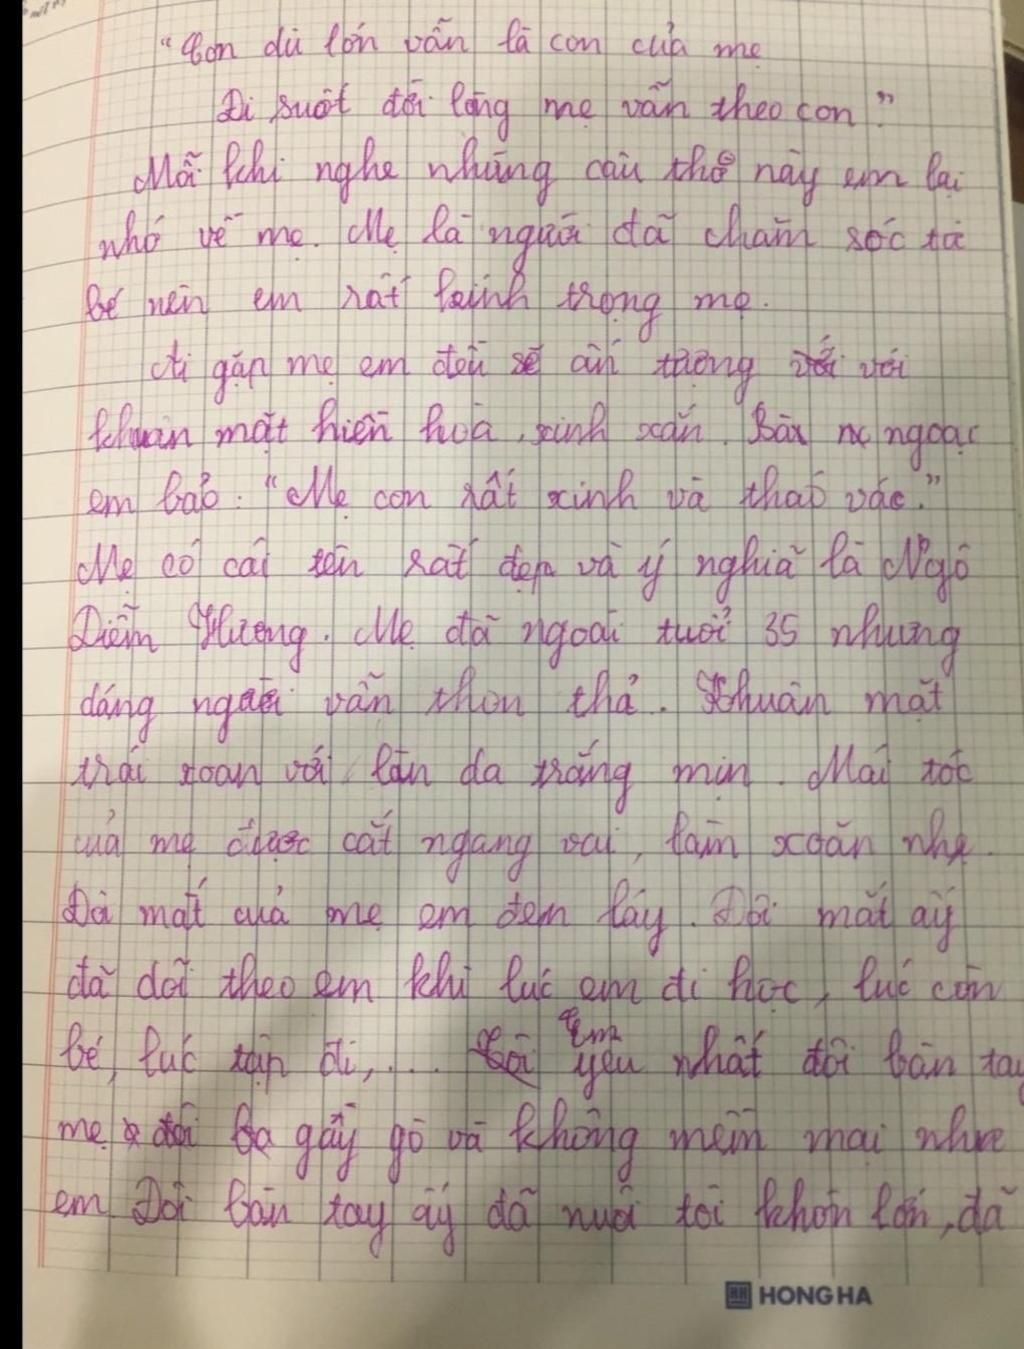 "Con dù lớn vẫn là con của mẹ
Đi suốt đời lòng mẹ vẫn theo con"
Mỗi khi nghe những câu thơ này em lại
nhớ về mẹ. Mẹ là người đã chăm sóc từ
bé nên em rất kính trọng mẹ.
Ai gặp mẹ em đều sẽ ấn tượng với
khuân mặt hiền hoà, xinh xắn. Bà ngoại
em bảo: "Mẹ con rất xinh và tháo vác."
Mẹ có cái tên rất đẹp và ý nghĩa là Ngô
Diễm Hương. Mẹ đã ngoài tuổi 35 nhưng
dáng người vẫn thon thả. Khuân mặt
trái xoan với làn da trắng mịn. Mái tóc
của mẹ được cắt ngang vai, làm xoăn nhẹ.
Đôi mắt của mẹ em đem láy. Đôi mắt ấy
đã dõi theo em khi lúc em đi học, lúc còn
bé, lúc tập đi,.... Em yêu nhất đôi bàn tay
mẹ gầy gò và không mềm mại như
em. Đôi bàn tay ấy đã nuôi tôi khôn lớn, đã
HONG HA